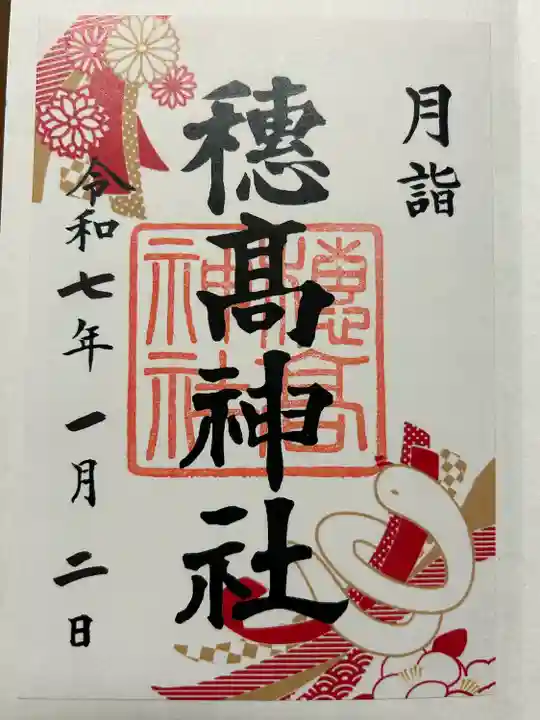 月詣
穂髙神社
穂髙神社
令和七年一月二日